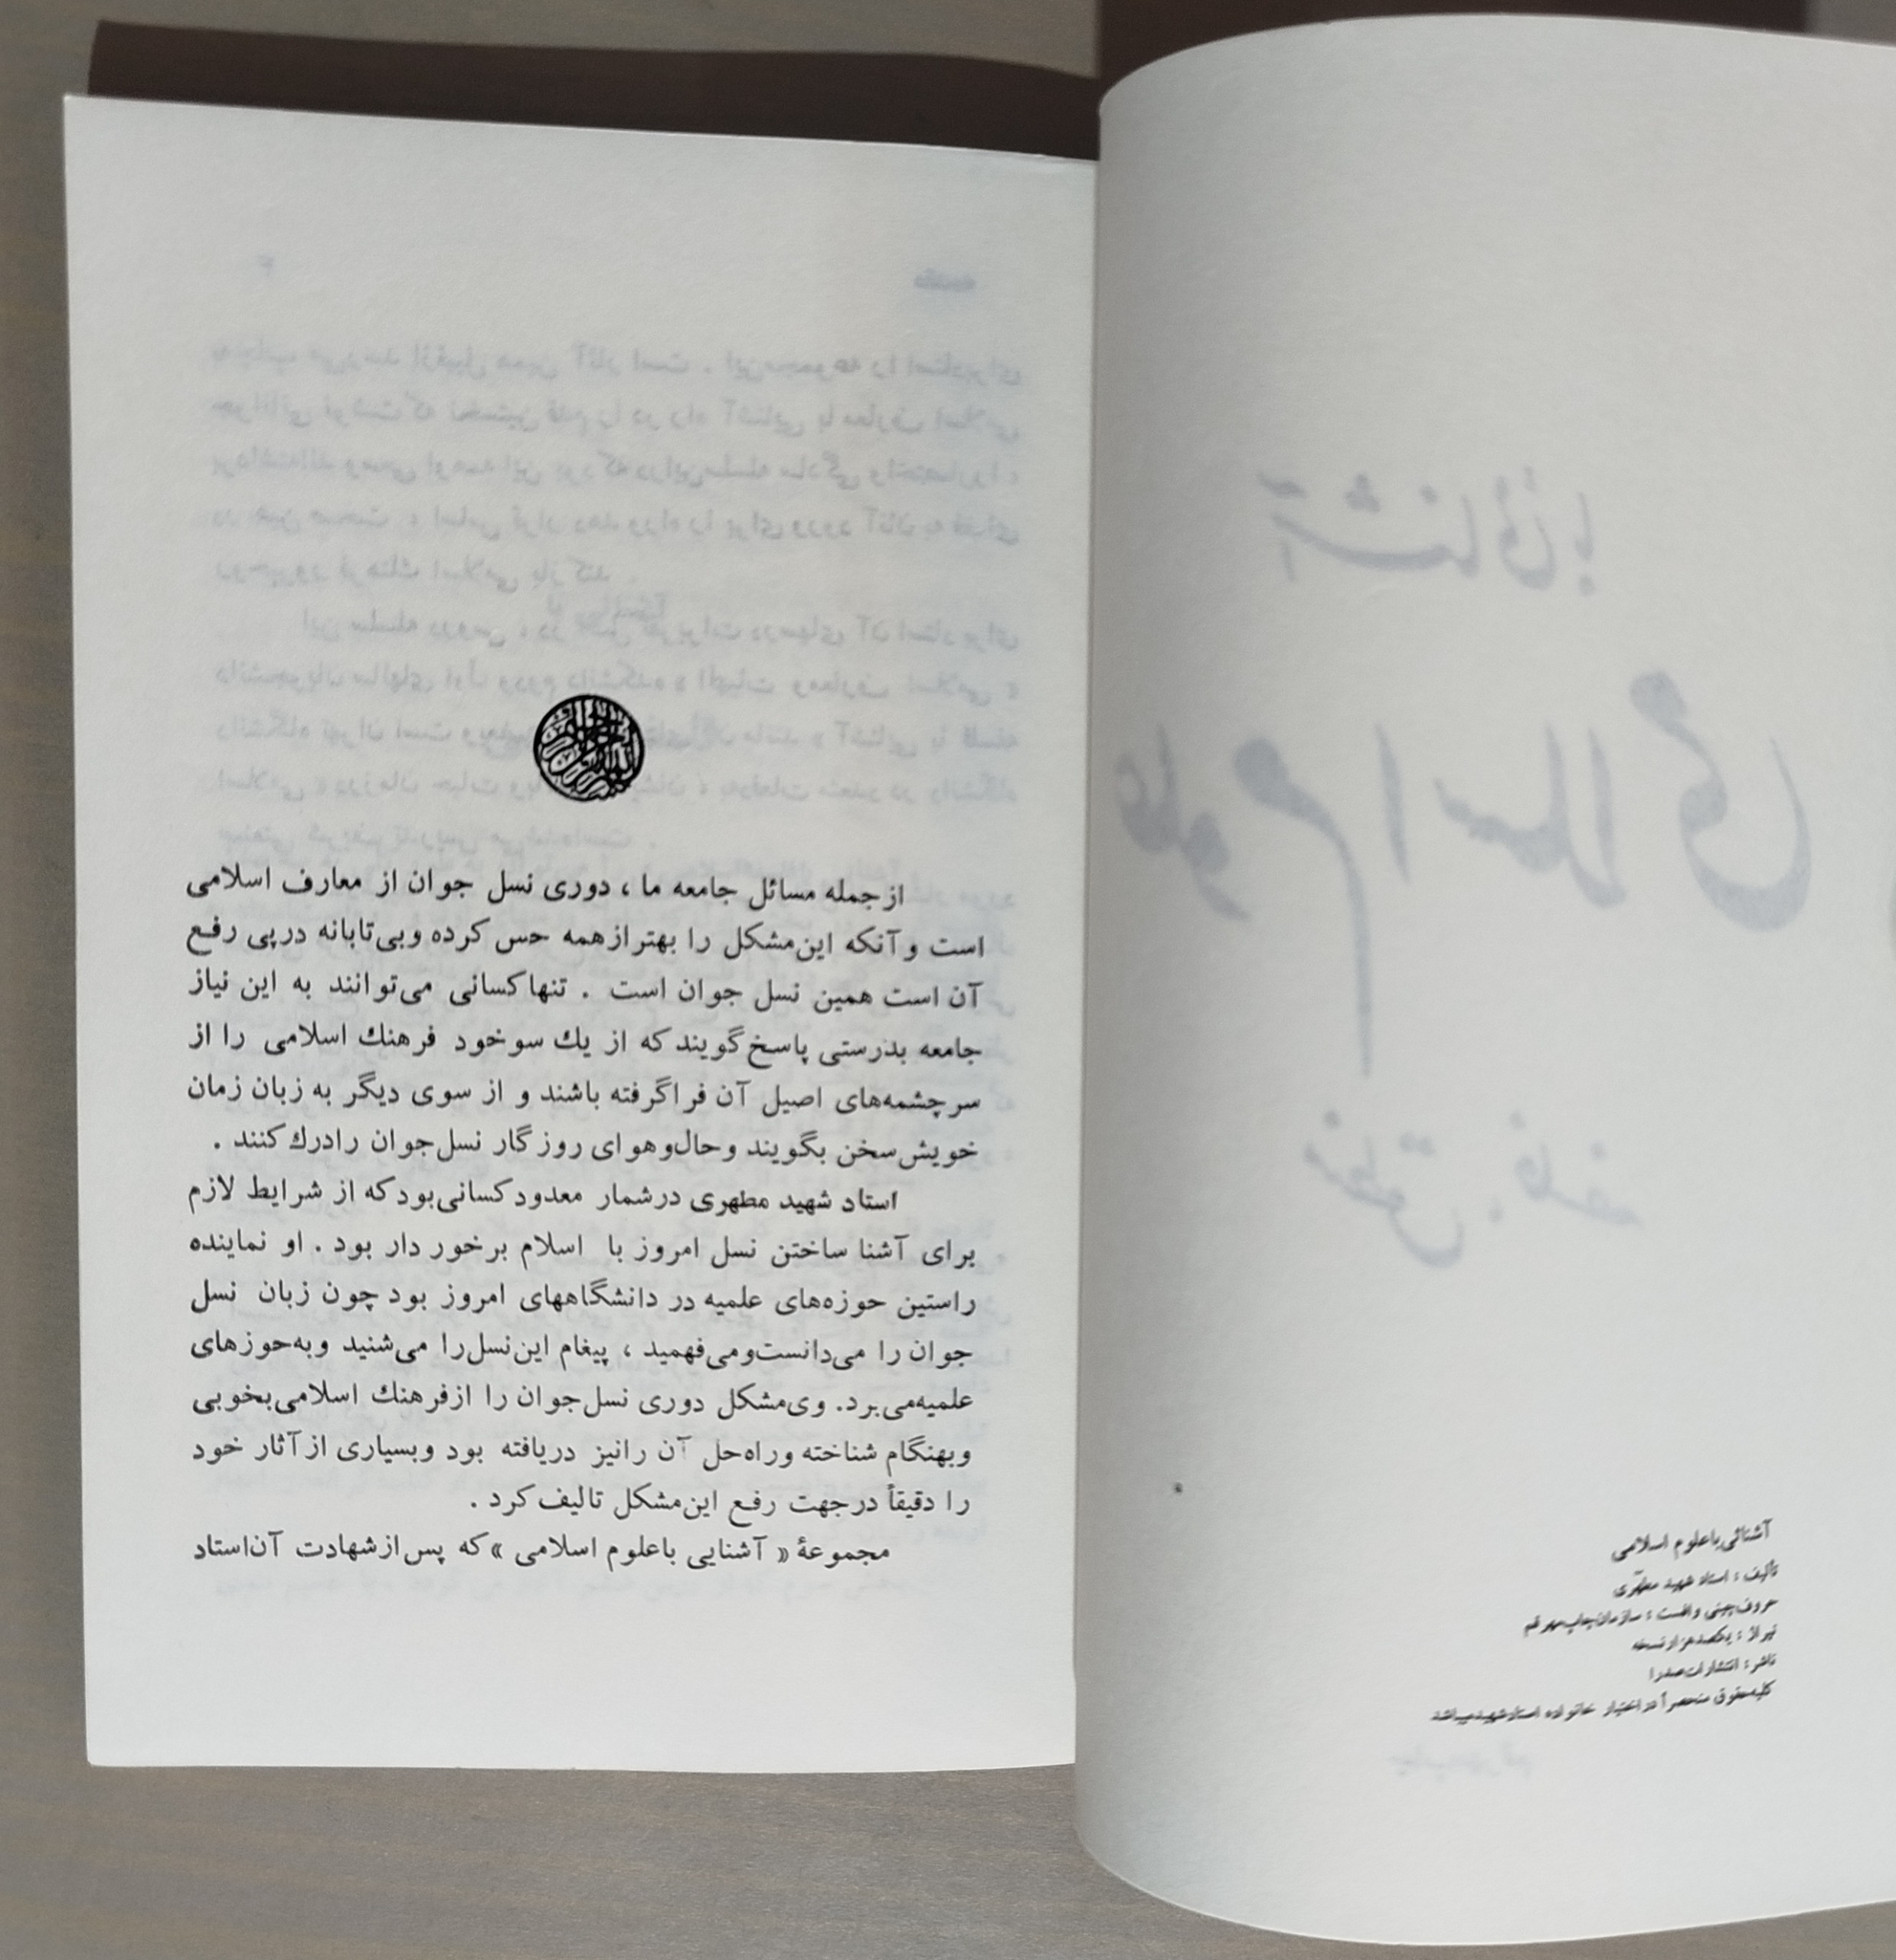 آشنائی باعلوم اسلامی
تألیف : استاد شهید مطهّری
حروفچینی و افست : سازمان چاپ مهر قم
تیراژ : یکصدهزار نسخه
ناشر : انتشارات صدرا
کلیه حقوق منحصراً در اختیار خانواده استاد شهید میباشد
از جمله مسائل جامعه ما ، دوری نسل جوان از معارف اسلامی
است و آنکه این مشکل را بهتر از همه حس کرده و بی‌تابانه در پی رفع
آن است همین نسل جوان است . تنها کسانی می‌توانند به این نیاز
جامعه بدرستی پاسخ گویند که از یك سو خود فرهنك اسلامی را از
سرچشمه‌های اصیل آن فراگرفته باشند و از سوی دیگر به زبان زمان
خویش سخن بگویند و حال و هوای روزگار نسل جوان را درك کنند .
استاد شهید مطهری در شمار معدود کسانی بود که از شرایط لازم
برای آشنا ساختن نسل امروز با اسلام برخور دار بود . او نماینده
راستین حوزه‌های علمیه در دانشگاههای امروز بود چون زبان نسل
جوان را می‌دانست و می‌فهمید ، پیغام این نسل را می‌شنید و به حوزهای
علمیه می‌برد. وی مشکل دوری نسل جوان را از فرهنك اسلامی بخوبی
و بهنگام شناخته و راه حل آن را نیز دریافته بود و بسیاری از آثار خود
را دقیقاً در جهت رفع این مشکل تالیف کرد .
مجموعهٔ « آشنایی با علوم اسلامی » که پس از شهادت آن استاد